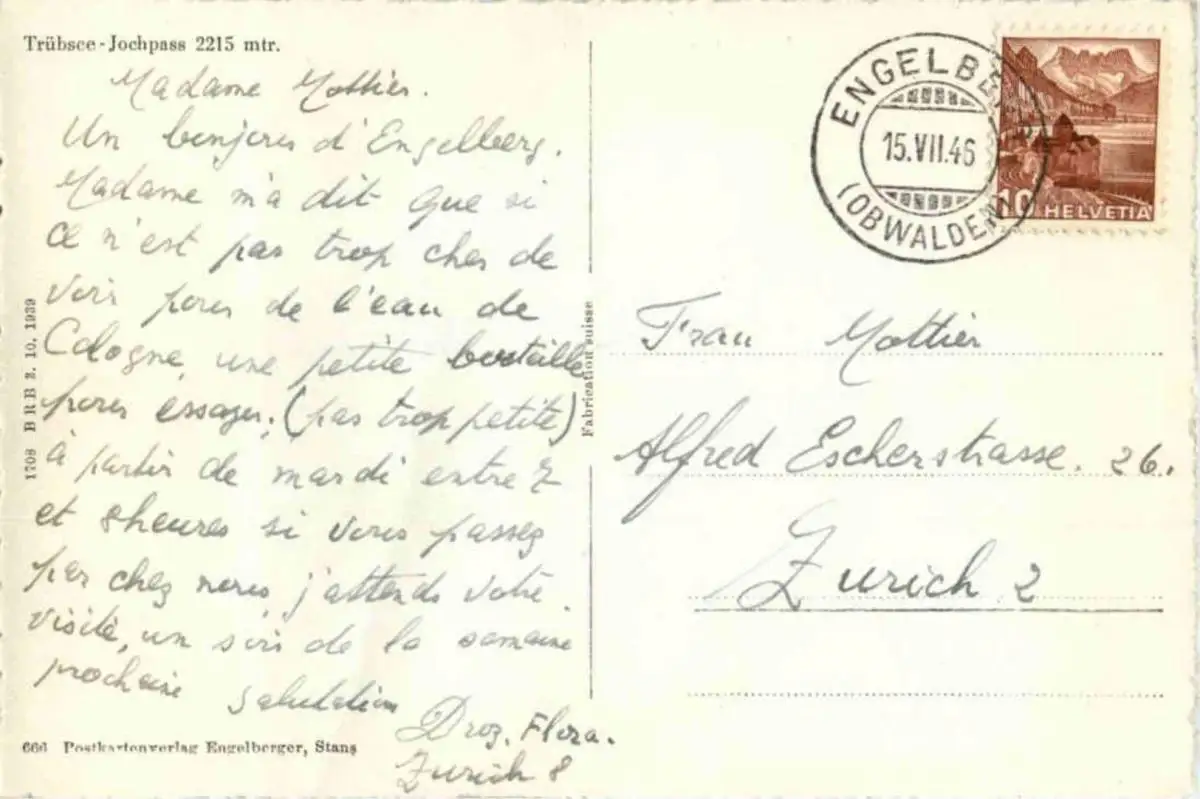 Trübsee-Jochpass 2215 mtr.
Madame Mottier.
Un bonjour d'Engelberg.
Madame m'a dit que si
ce n'est pas trop cher de
voir pour de l'eau de
Cologne, une petite bouteille
pour essayer, (pas trop petite)
à partir de mardi entre 7
et 8 heures si vous passez
par chez nous, j'attends votre
visite, un soir de la semaine
prochaine salutation
Droz. Flora.
Zurich 8
666 Postkartenverlag Engelberger, Stans
1708 BRB 2. 10. 1939
Fabrication suisse
ENGELBERG
15.VII.46
(OBWALDEN)
10 HELVETIA
Frau Mottier
Alfred Escherstrasse. 26.
Zurich 2